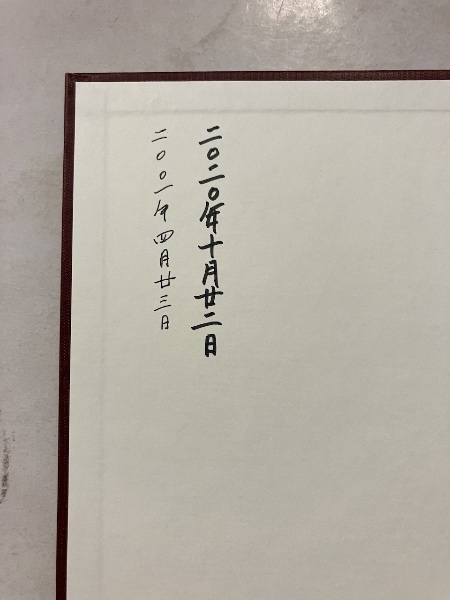 二〇二〇年十月廿二日
二〇〇一年四月廿三日